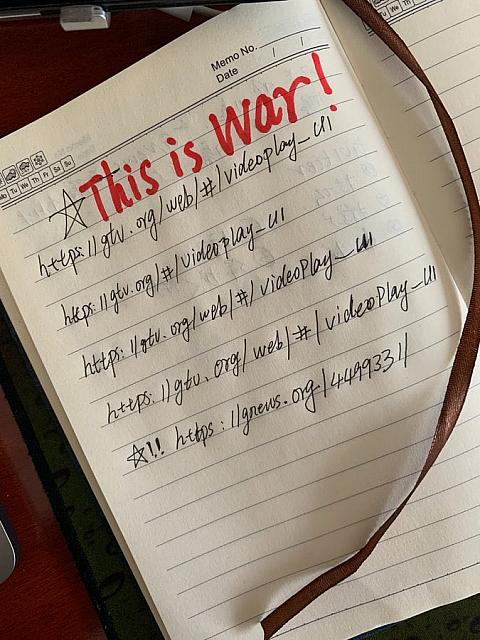 Memo No.
Date / /
Mo Tu We Th Fr Sa Su
This is War!
☆ https://gtv.org/web/#/videoplay_UI
https://gtv.org/#/videoplay_UI
https://gtv.org/web/#/videoPlay_UI
https://gtv.org/web/#/videoPlay_UI
☆!! https://gnews.org/449933/